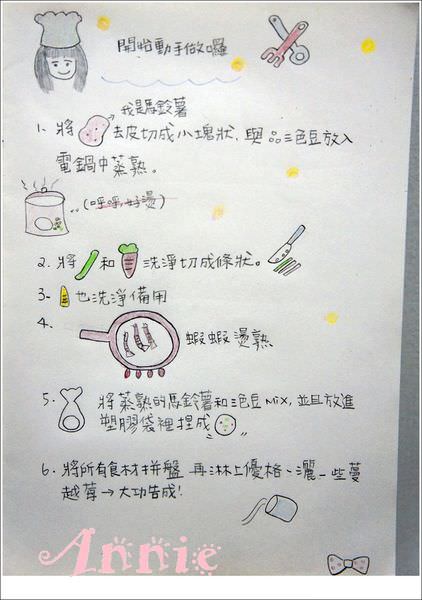 開始動手做囉
我是馬鈴薯
1. 將 去皮切成小塊狀,與 三色豆放入
電鍋中蒸熟。
(呼呼,好燙)
2. 將 和 洗淨切成條狀。
3. 也洗淨備用
4. 蝦蝦燙熟
5. 將蒸熟的馬鈴薯和三色豆Mix,並且放進
塑膠袋裡捏成
6. 將所有食材拼盤 再淋上優格、灑一些蔓
越莓→大功告成!
Annie